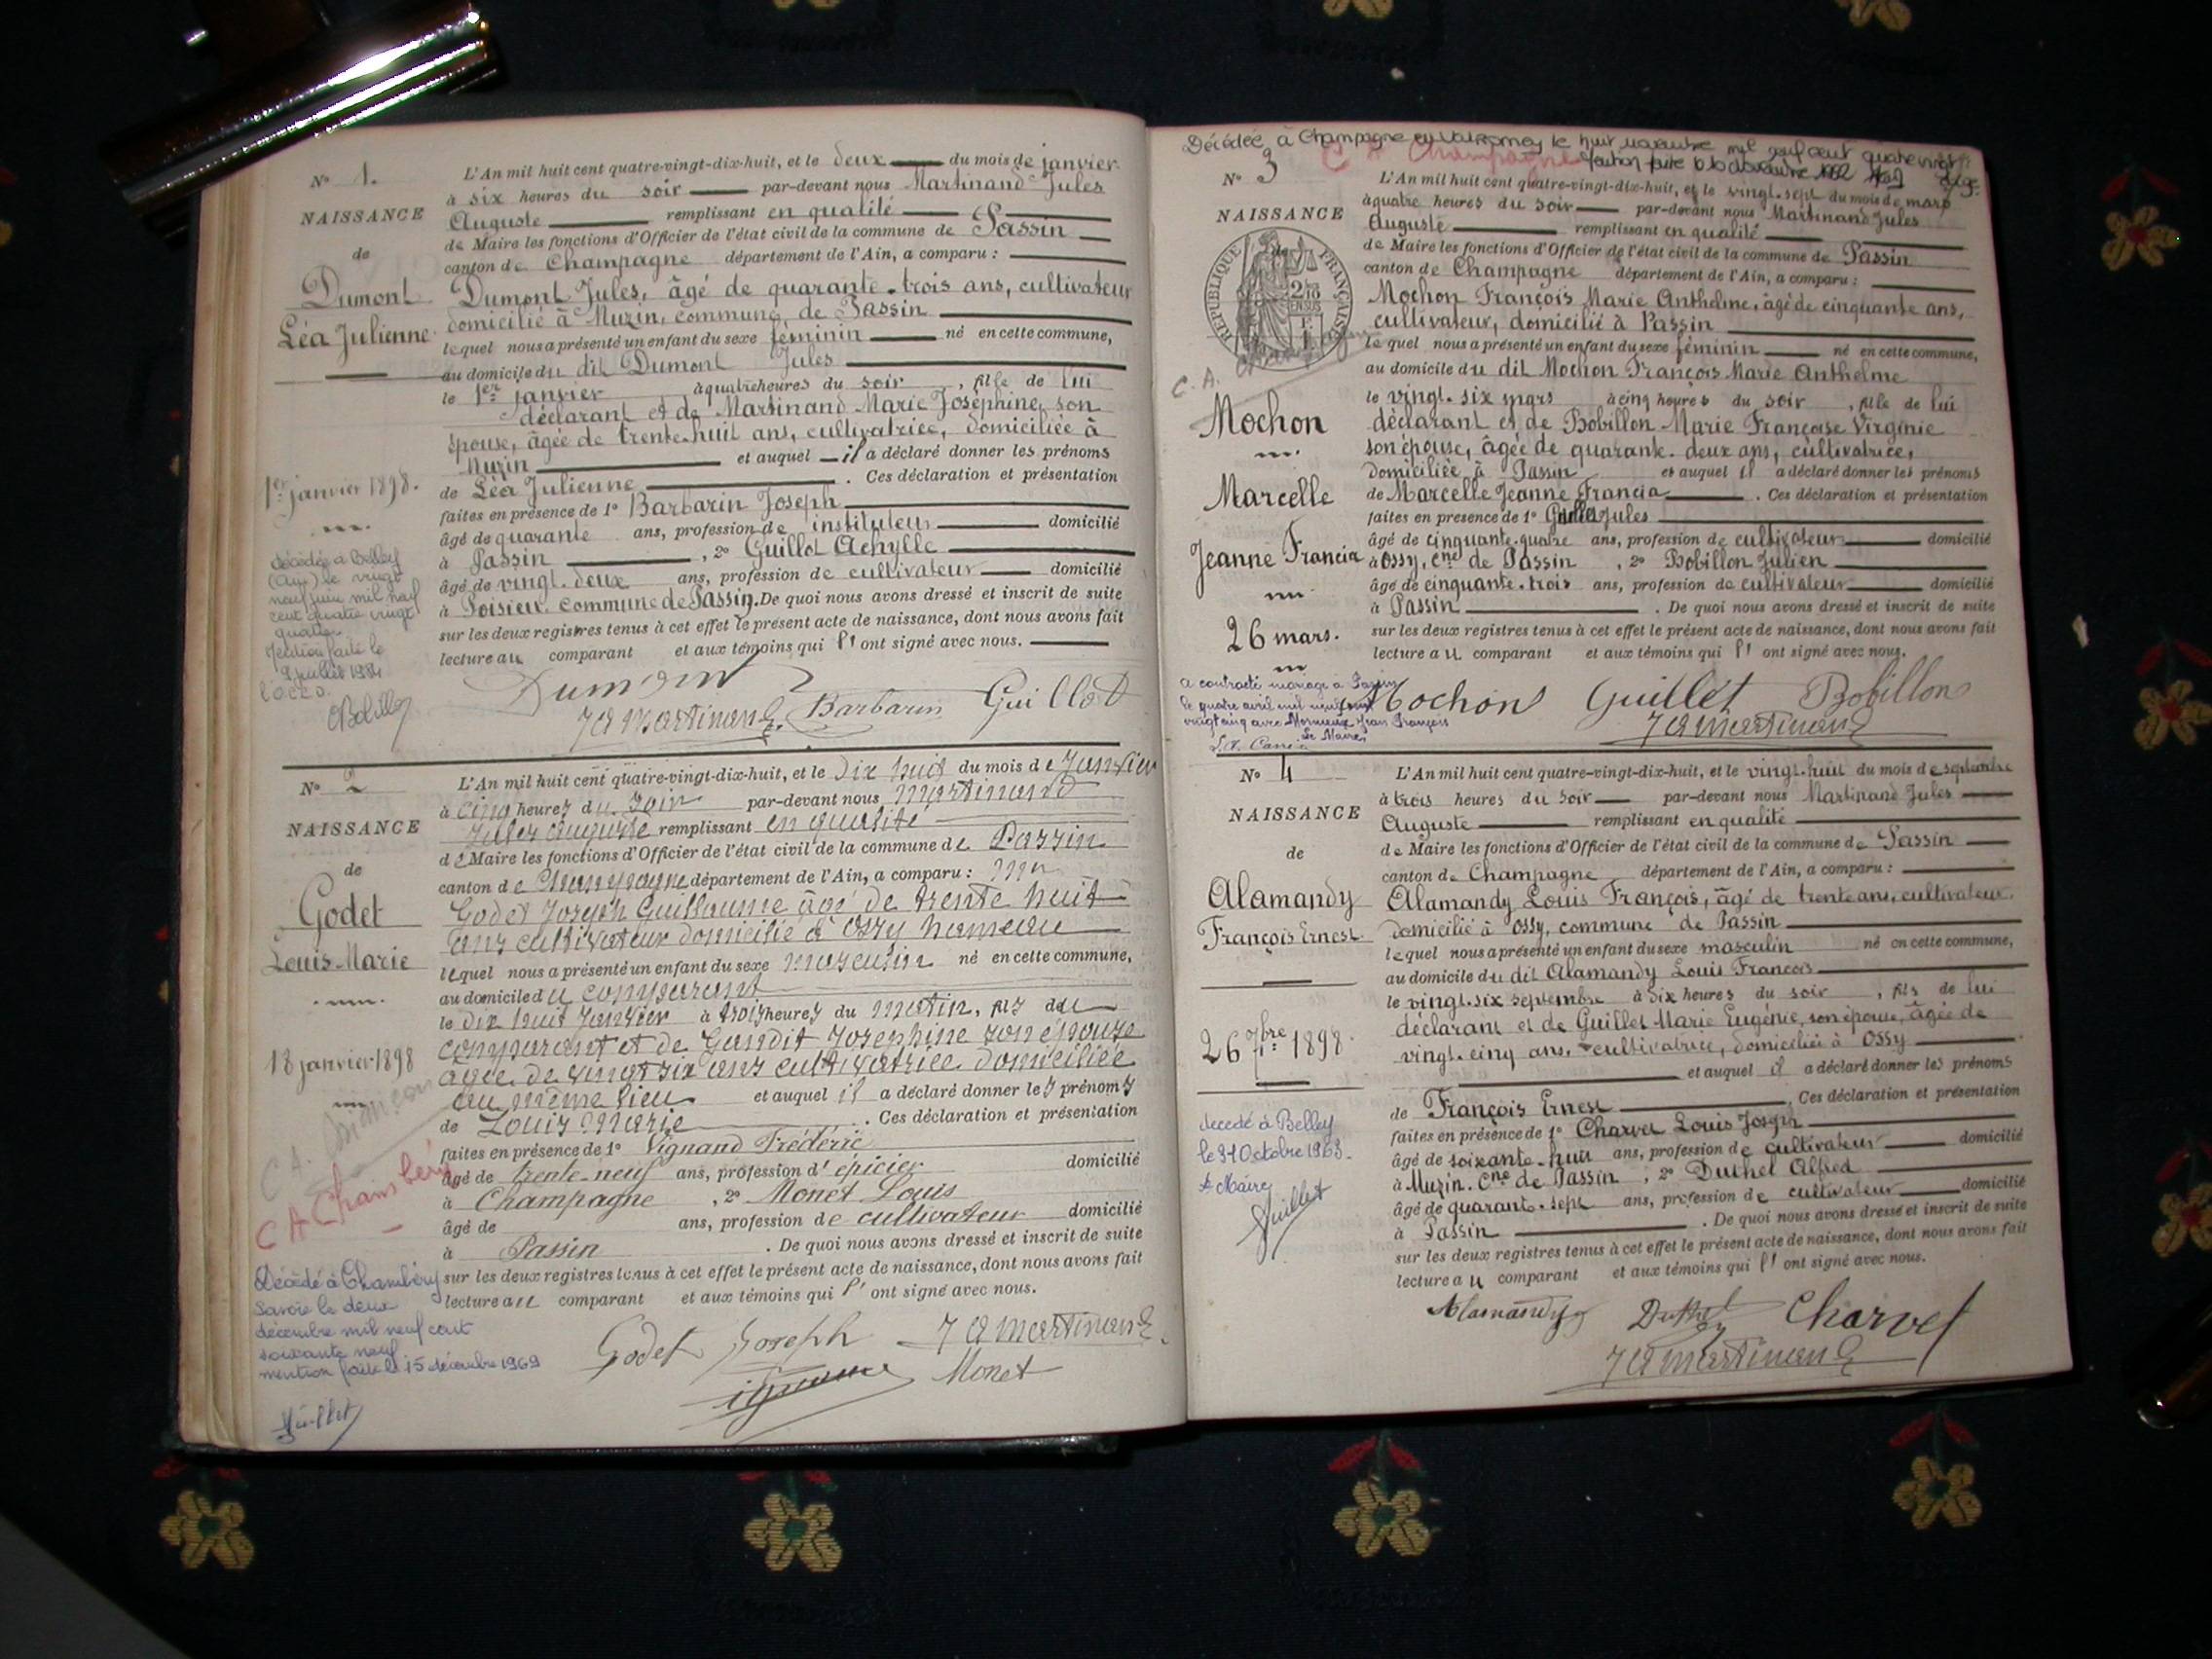 No 1.
NAISSANCE
de
Dumont
Léa Julienne
1er janvier 1898.
décédée à Belley
(Ain) le vingt
neuf juin mil neuf
cent quatre vingt
quatre
Mention faite le
9 juillet 1984
Bobillon
L'An mil huit cent quatre-vingt-dix-huit, et le deux du mois de janvier
à six heures du soir par-devant nous Martinand Jules
Auguste remplissant en qualité
de Maire les fonctions d'Officier de l'état civil de la commune de Passin
canton de Champagne département de l'Ain, a comparu :
Dumont Jules, âgé de quarante-trois ans, cultivateur
domicilié à Muzin, commune de Passin
lequel nous a présenté un enfant du sexe féminin né en cette commune,
au domicile du dit Dumont Jules
le 1er janvier à quatre heures du soir, fille de lui
déclarant et de Martinand Marie Joséphine, son
épouse, âgée de trente-huit ans, cultivatrice, domiciliée à
Muzin et auquel il a déclaré donner les prénoms
de Léa Julienne. Ces déclaration et présentation
faites en présence de 1° Barbarin Joseph
âgé de quarante ans, profession de instituteur domicilié
à Passin, 2° Guillot Achylle
âgé de vingt-deux ans, profession de cultivateur domicilié
à Poisieu, commune de Passin. De quoi nous avons dressé et inscrit de suite
sur les deux registres tenus à cet effet le présent acte de naissance, dont nous avons fait
lecture au comparant et aux témoins qui l'ont signé avec nous.
Dumont
JA Martinand Barbarin Guillot
No 2
NAISSANCE
de
Godet
Louis-Marie
18 janvier 1898
C A.
C A Chambéry
Décédé à Chambéry
Savoie le deux
décembre mil neuf cent
soixante neuf
mention faite le 15 décembre 1969
Guillet
L'An mil huit cent quatre-vingt-dix-huit, et le dix huit du mois de Janvier
à cinq heures du soir par-devant nous Martinand
Jules Auguste remplissant en qualité
de Maire les fonctions d'Officier de l'état civil de la commune de Passin
canton de Champagne département de l'Ain, a comparu :
Godet Joseph Guillaume âgé de trente huit
ans cultivateur domicilié à Ossy hameau
lequel nous a présenté un enfant du sexe masculin né en cette commune,
au domicile du comparant
le dix huit Janvier à trois heures du matin, fils du
comparant et de Gandit Josephine son épouse
agée de vingt six ans cultivatrice domiciliée
au même lieu et auquel il a déclaré donner les prénoms
de Louis Marie. Ces déclaration et présentation
faites en présence de 1° Vignand Frédéric
âgé de trente-neuf ans, profession d'épicier domicilié
à Champagne, 2° Monet Louis
âgé de ans, profession de cultivateur domicilié
à Passin. De quoi nous avons dressé et inscrit de suite
sur les deux registres tenus à cet effet le présent acte de naissance, dont nous avons fait
lecture au comparant et aux témoins qui l'ont signé avec nous.
Godet Joseph JA Martinand
Monet
Décédée à Champagne en Valromey le huit novembre mil neuf cent quatre vingt
C A Champagne
No 3
NAISSANCE
de
RÉPUBLIQUE FRANÇAISE
C. A. Champagne
Mochon
Marcelle
Jeanne Francia
26 mars.
a contracté mariage à Passin
le quatre avril mil neuf cent
vingt cinq avec Monnieux Jean François
Le Maire
L'An mil huit cent quatre-vingt-dix-huit, et le vingt-sept du mois de mars
à quatre heures du soir par-devant nous Martinand Jules
Auguste remplissant en qualité
de Maire les fonctions d'Officier de l'état civil de la commune de Passin
canton de Champagne département de l'Ain, a comparu :
Mochon François Marie Anthelme, âgé de cinquante ans,
cultivateur, domicilié à Passin
lequel nous a présenté un enfant du sexe féminin né en cette commune,
au domicile du dit Mochon François Marie Anthelme
le vingt-six mars à cinq heures du soir, fille de lui
déclarant et de Bobillon Marie Françoise Virginie
son épouse, âgée de quarante-deux ans, cultivatrice,
domiciliée à Passin et auquel il a déclaré donner les prénoms
de Marcelle Jeanne Francia. Ces déclaration et présentation
faites en presence de 1° Guillet Jules
âgé de cinquante-quatre ans, profession de cultivateur domicilié
à Ossy, cne de Passin, 2° Bobillon Julien
âgé de cinquante-trois ans, profession de cultivateur domicilié
à Passin. De quoi nous avons dressé et inscrit de suite
sur les deux registres tenus à cet effet le présent acte de naissance, dont nous avons fait
lecture au comparant et aux témoins qui l'ont signé avec nous.
Mochon Guillet Bobillon
JA Martinand
No 4
NAISSANCE
de
Alamandy
François Ernest
26 7bre 1898.
décédé à Belley
le 31 Octobre 1963.
Le Maire
Guillet
L'An mil huit cent quatre-vingt-dix-huit, et le vingt-huit du mois de septembre
à trois heures du soir par-devant nous Martinand Jules
Auguste remplissant en qualité
de Maire les fonctions d'Officier de l'état civil de la commune de Passin
canton de Champagne département de l'Ain, a comparu :
Alamandy Louis François, âgé de trente ans, cultivateur
domicilié à Ossy, commune de Passin
lequel nous a présenté un enfant du sexe masculin né en cette commune,
au domicile du dit Alamandy Louis François
le vingt-six septembre à dix heures du soir, fils de lui
déclarant et de Guillet Marie Eugénie, son épouse, âgée de
vingt-cinq ans, cultivatrice, domiciliée à Ossy
et auquel il a déclaré donner les prénoms
de François Ernest. Ces déclaration et présentation
faites en présence de 1° Charvet Louis Joseph
âgé de soixante-huit ans, profession de cultivateur domicilié
à Muzin, cne de Passin, 2° Duthel Alfred
âgé de quarante-sept ans, profession de cultivateur domicilié
à Passin. De quoi nous avons dressé et inscrit de suite
sur les deux registres tenus à cet effet le présent acte de naissance, dont nous avons fait
lecture au comparant et aux témoins qui l'ont signé avec nous.
Alamandy Duthel Charvet
JA Martinand